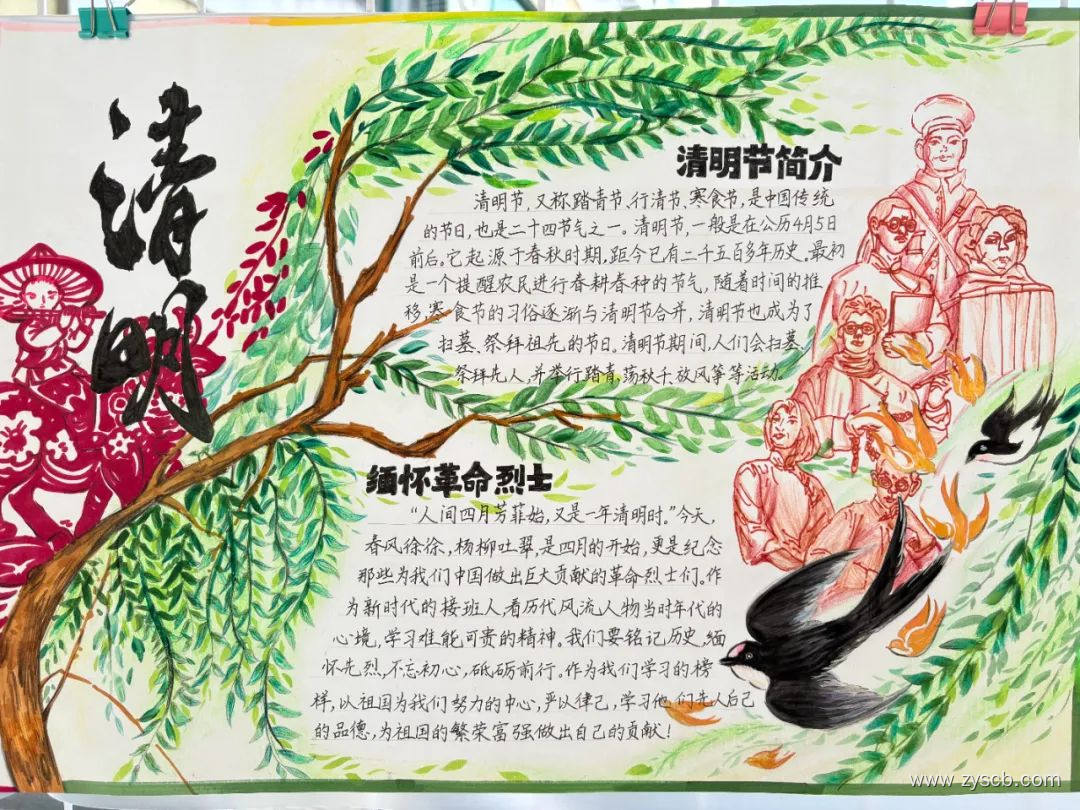 清明
清明节简介
清明节,又称踏青节、行清节、寒食节,是中国传统
的节日,也是二十四节气之一。清明节,一般是在公历4月5日
前后。它起源于春秋时期,距今已有二千五百多年历史。最初
是一个提醒农民进行春耕春种的节气,随着时间的推
移,寒食节的习俗逐渐与清明节合并,清明节也成为了
扫墓、祭拜祖先的节日。清明节期间,人们会扫墓、
祭拜先人,并举行踏青,荡秋千,放风筝等活动。
缅怀革命烈士
“人间四月芳菲始,又是一年清明时。”今天,
春风徐徐,杨柳吐翠,是四月的开始,更是纪念
那些为我们中国做出巨大贡献的革命烈士们。作
为新时代的接班人,看历代风流人物当时年代的
心境,学习难能可贵的精神。我们要铭记历史,缅
怀先烈,不忘初心,砥砺前行。作为我们学习的榜
样,以祖国为我们努力的中心,严以律己,学习他们先人后己
的品德,为祖国的繁荣富强做出自己的贡献!
www.zyscb.com